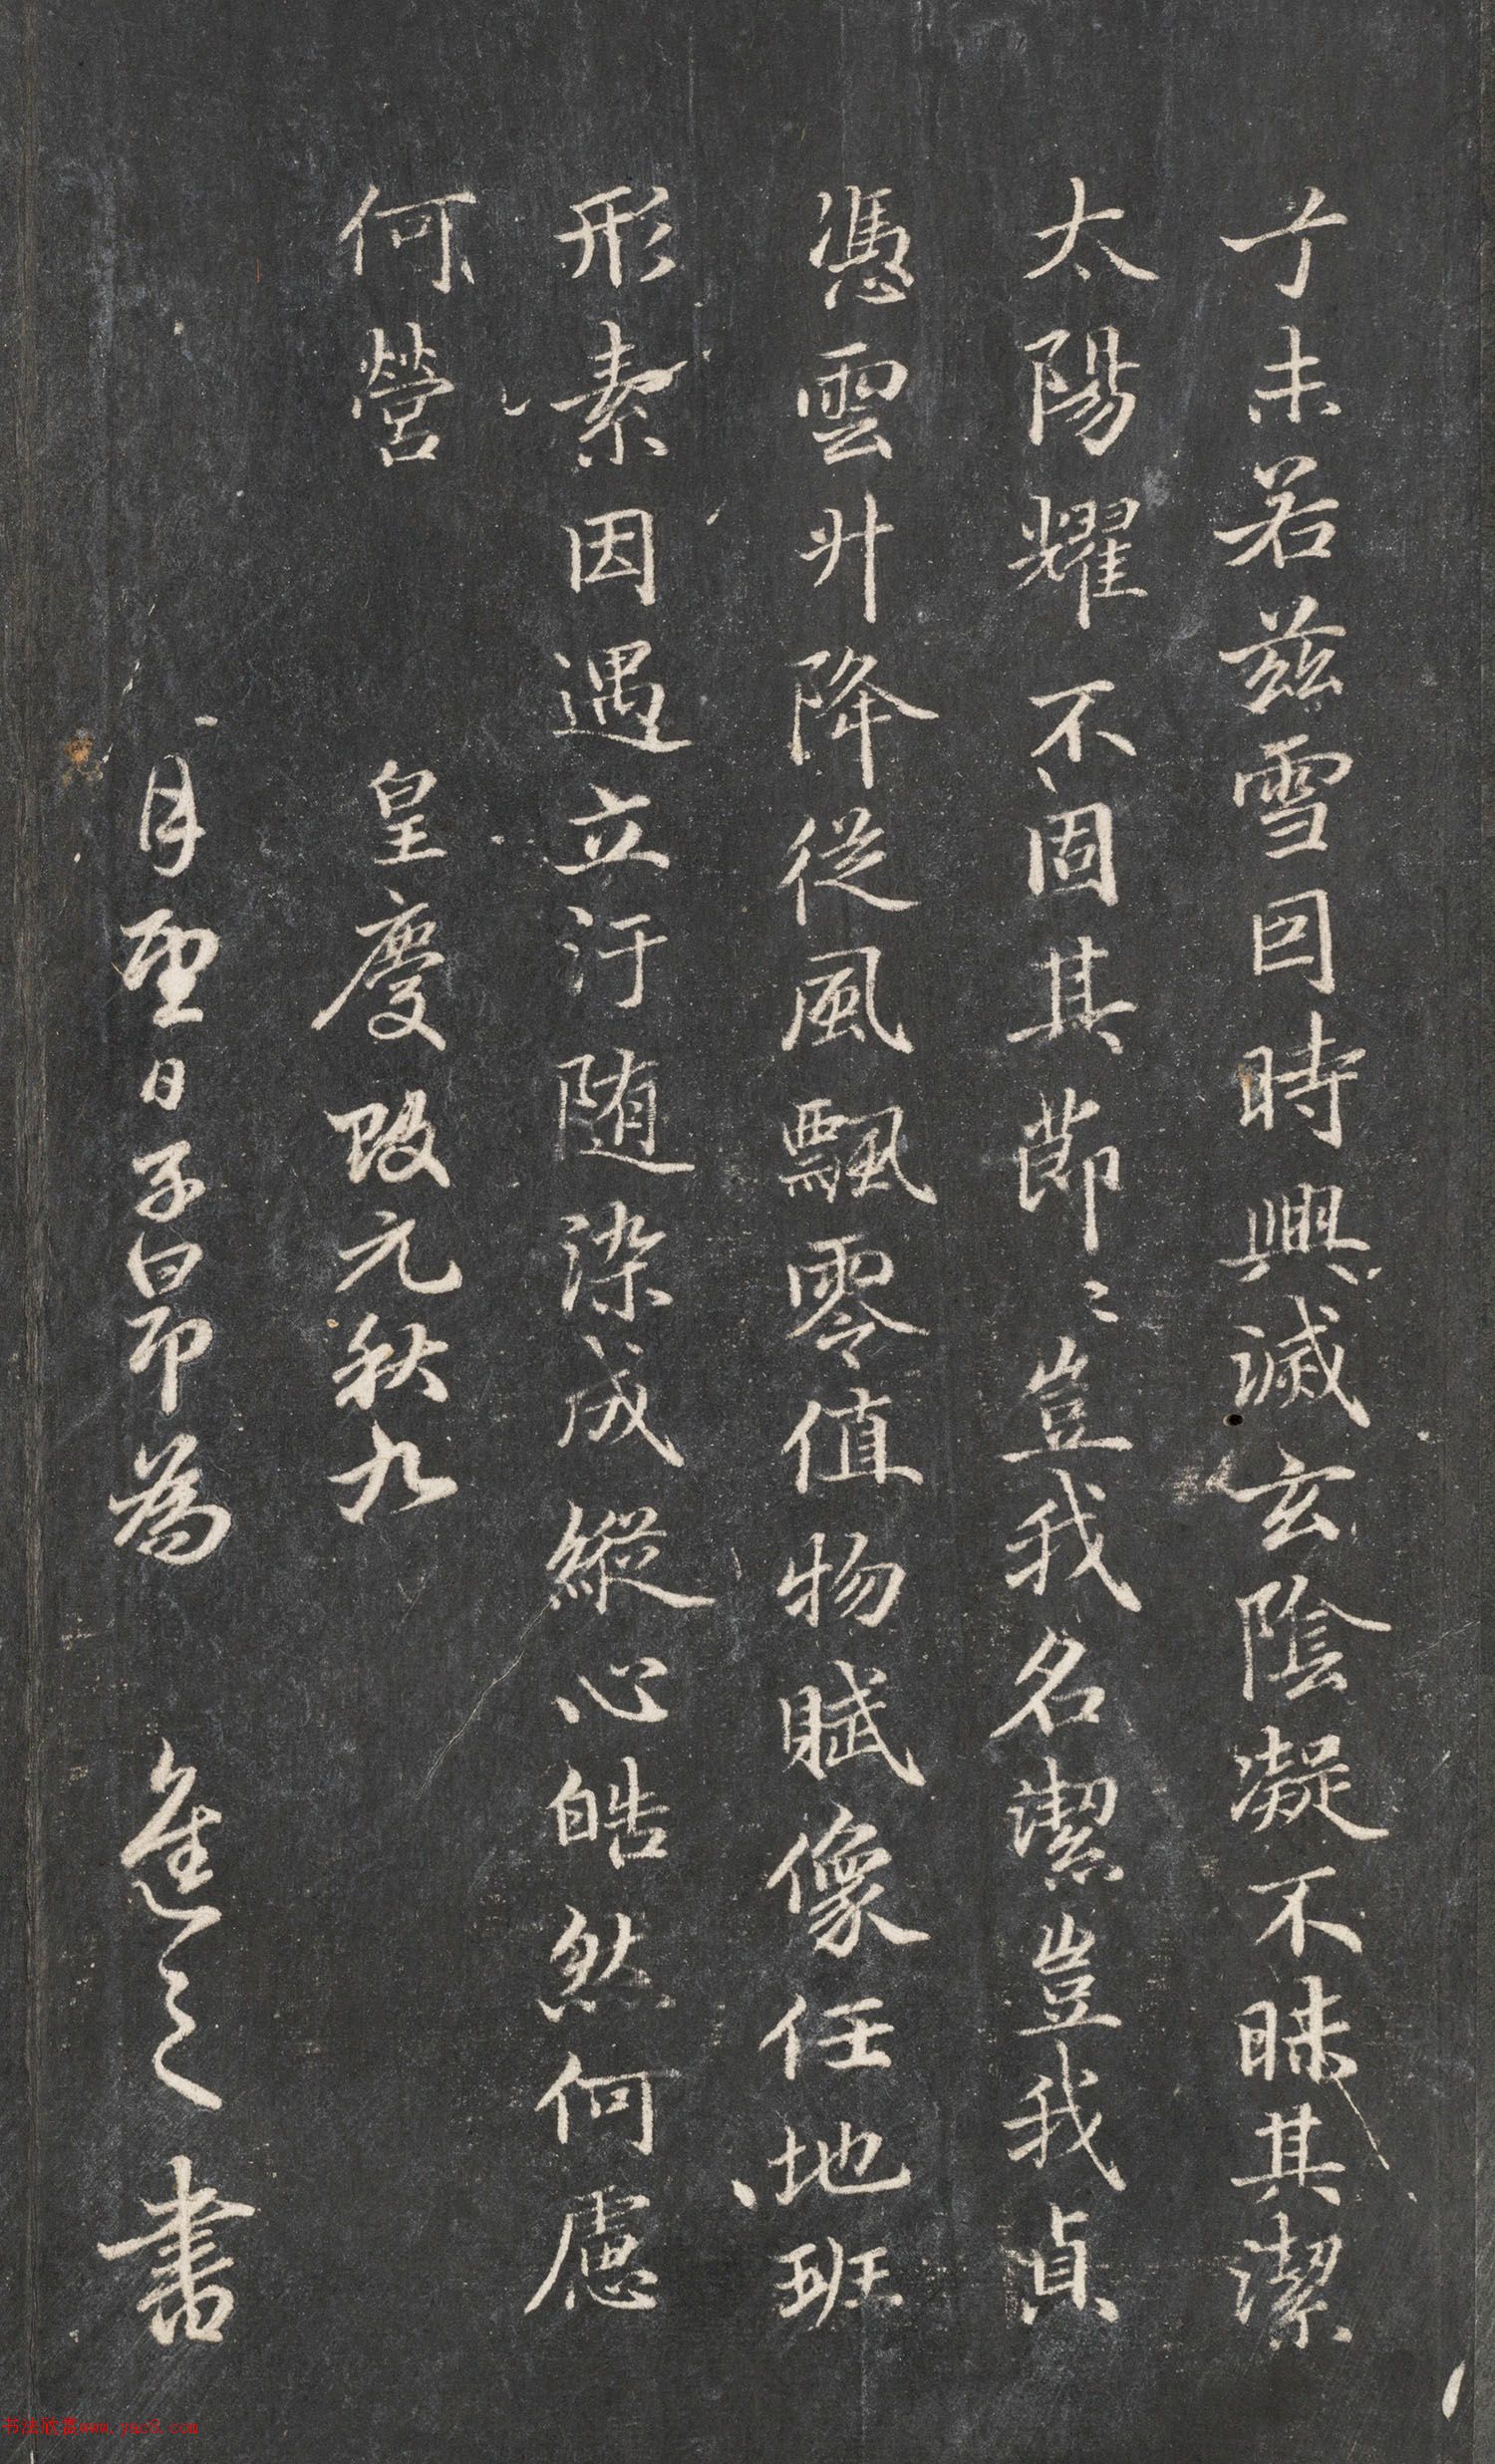 寸未若兹雪因時興滅玄陰凝不昧其潔
太陽耀不固其節々豈我名潔豈我貞
憑雲升降從風飄零值物賦像任地班
形素因遇立汙随染成縱心皓然何慮
何營
皇慶改元秋九
月望日子昂為
進之書
书法欣赏www.yac8.com